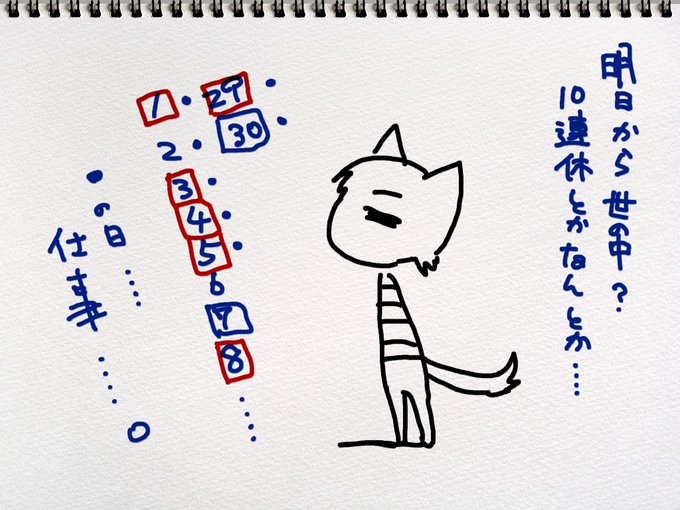 明日から世の中?
10連休とかなんとか……
29・
30・
1・
2・
3・
4・
5・
6
7
8
……
●の日……
仕事……。